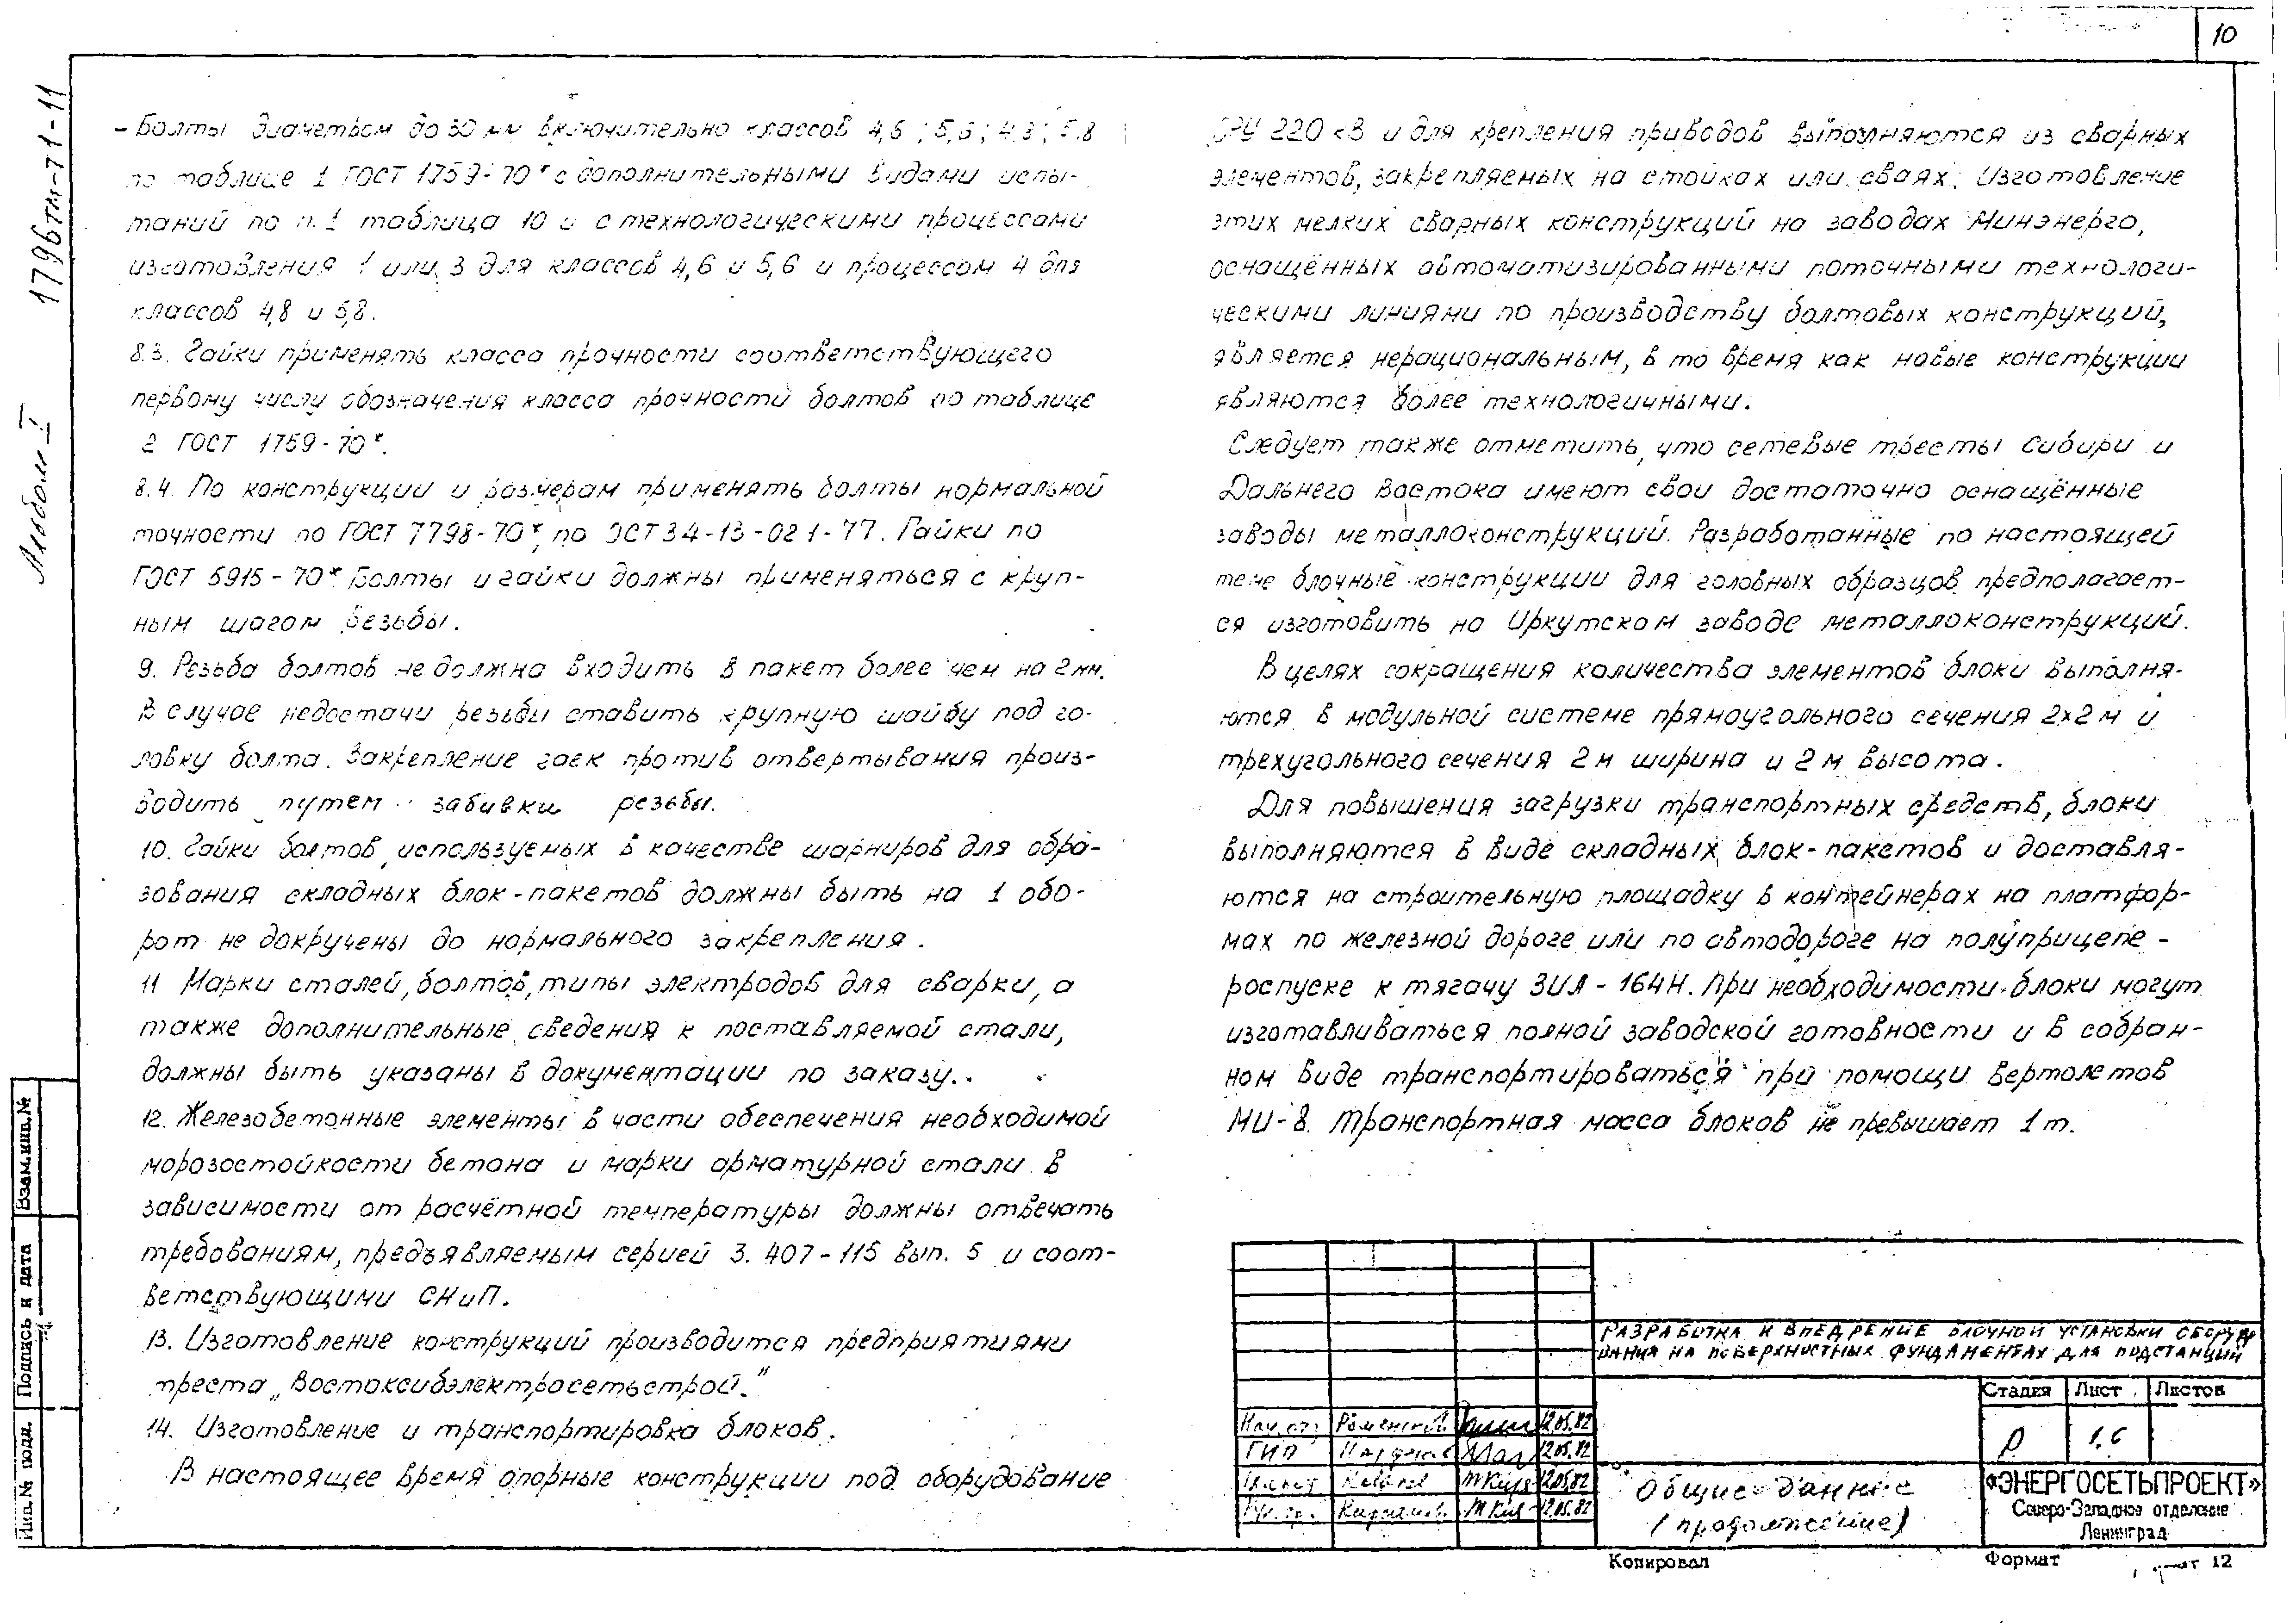 10
1796тм-т1-11
Альбом I
– Болты диаметром до 30 мм включительно классов 4,6; 5,6; 4,8; 5,8
по таблице 1 ГОСТ 1759-70* с дополнительными видами испы-
таний по п.1 таблица 10 и с технологическими процессами
изготовления 1 или 3 для классов 4,6 и 5,6 и процессом 4 для
классов 4,8 и 5,8.
8.3. Гайки применять класса прочности соответствующего
первому числу обозначения класса прочности болтов по таблице
2 ГОСТ 1759-70*.
8.4. По конструкции и размерам применять болты нормальной
точности по ГОСТ 7798-70*, по ОСТ 34-13-021-77. Гайки по
ГОСТ 5915-70*. Болты и гайки должны применяться с круп-
ным шагом резьбы.
9. Резьба болтов не должна входить в пакет более чем на 2 мм.
В случае недостачи резьбы ставить крупную шайбу под го-
ловку болта. Закрепление гаек против отвертывания произ-
водить путем забивки резьбы.
10. Гайки болтов, используемых в качестве шарниров для обра-
зования складных блок-пакетов должны быть на 1 обо-
рот не докручены до нормального закрепления.
11 Марки сталей, болтов, типы электродов для сварки, а
также дополнительные сведения к поставляемой стали,
должны быть указаны в документации по заказу.
12. Железобетонные элементы в части обеспечения необходимой
морозостойкости бетона и марки арматурной стали в
зависимости от расчётной температуры должны отвечать
требованиям, предъявляемым серией 3.407-115 вып. 5 и соот-
ветствующими СНиП.
13. Изготовление конструкций производится предприятиями
треста „Востоксибэлектросетьстрой."
14. Изготовление и транспортировка блоков.
В настоящее время опорные конструкции под оборудование
ОРУ 220 кВ и для крепления приводов выполняются из сварных
элементов, закрепляемых на стойках или сваях. Изготовление
этих мелких сварных конструкций на заводах Минэнерго,
оснащённых автоматизированными поточными технологи-
ческими линиями по производству болтовых конструкций,
является нерациональным, в то время как новые конструкции
являются более технологичными.
Следует также отметить, что сетевые тресты Сибири и
Дальнего Востока имеют свои достаточно оснащённые
заводы металлоконструкций. Разработанные по настоящей
теме блочные конструкции для головных образцов предполагает-
ся изготовить на Иркутском заводе металлоконструкций.
В целях сокращения количества элементов блоки выполня-
ются в модульной системе прямоугольного сечения 2×2 м и
трехугольного сечения 2 м ширина и 2 м высота.
Для повышения загрузки транспортных средств, блоки
выполняются в виде складных блок-пакетов и доставля-
ются на строительную площадку в контейнерах на платфор-
мах по железной дороге или по автодороге на полуприцепе -
роспуске к тягачу ЗИЛ-164Н. При необходимости блоки могут
изготавливаться полной заводской готовности и в собран-
ном виде транспортироваться при помощи вертолетов
МИ-8. Транспортная масса блоков не превышает 1 т.
Взам.инв.№
Подпись и дата
Инв.№ подл.
РАЗРАБОТКА И ВНЕДРЕНИЕ БЛОЧНОЙ УСТАНОВКИ ОБОРУДО
ВАНИЯ НА ПОВЕРХНОСТНЫХ ФУНДАМЕНТАХ ДЛЯ ПОДСТАНЦИЙ
Стадия Лист Листов
Р 1.6
Нач.отд. Роменский 12.05.82
ГИП 12.05.82
12.05.82
Рук.гр. 12.05.82
Общие данные
(продолжение)
«ЭНЕРГОСЕТЬПРОЕКТ»
Северо-Западное отделение
Ленинград
Копировал Формат 12